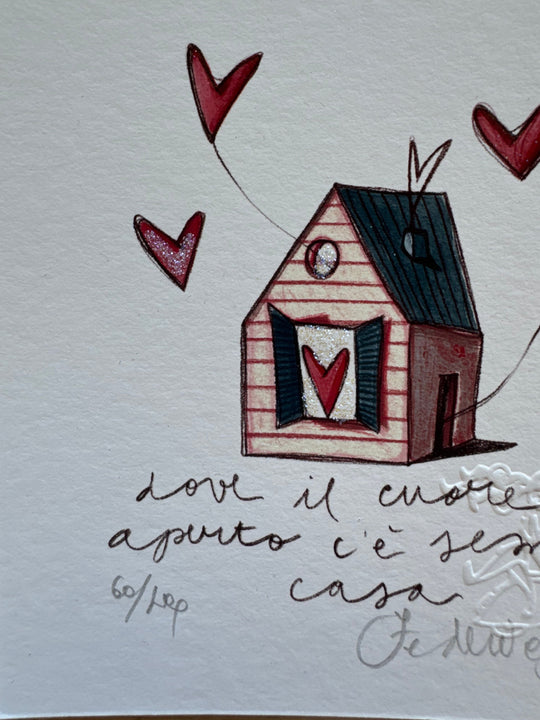 dove il cuore
aperto c'è sem
casa
60/
Federic